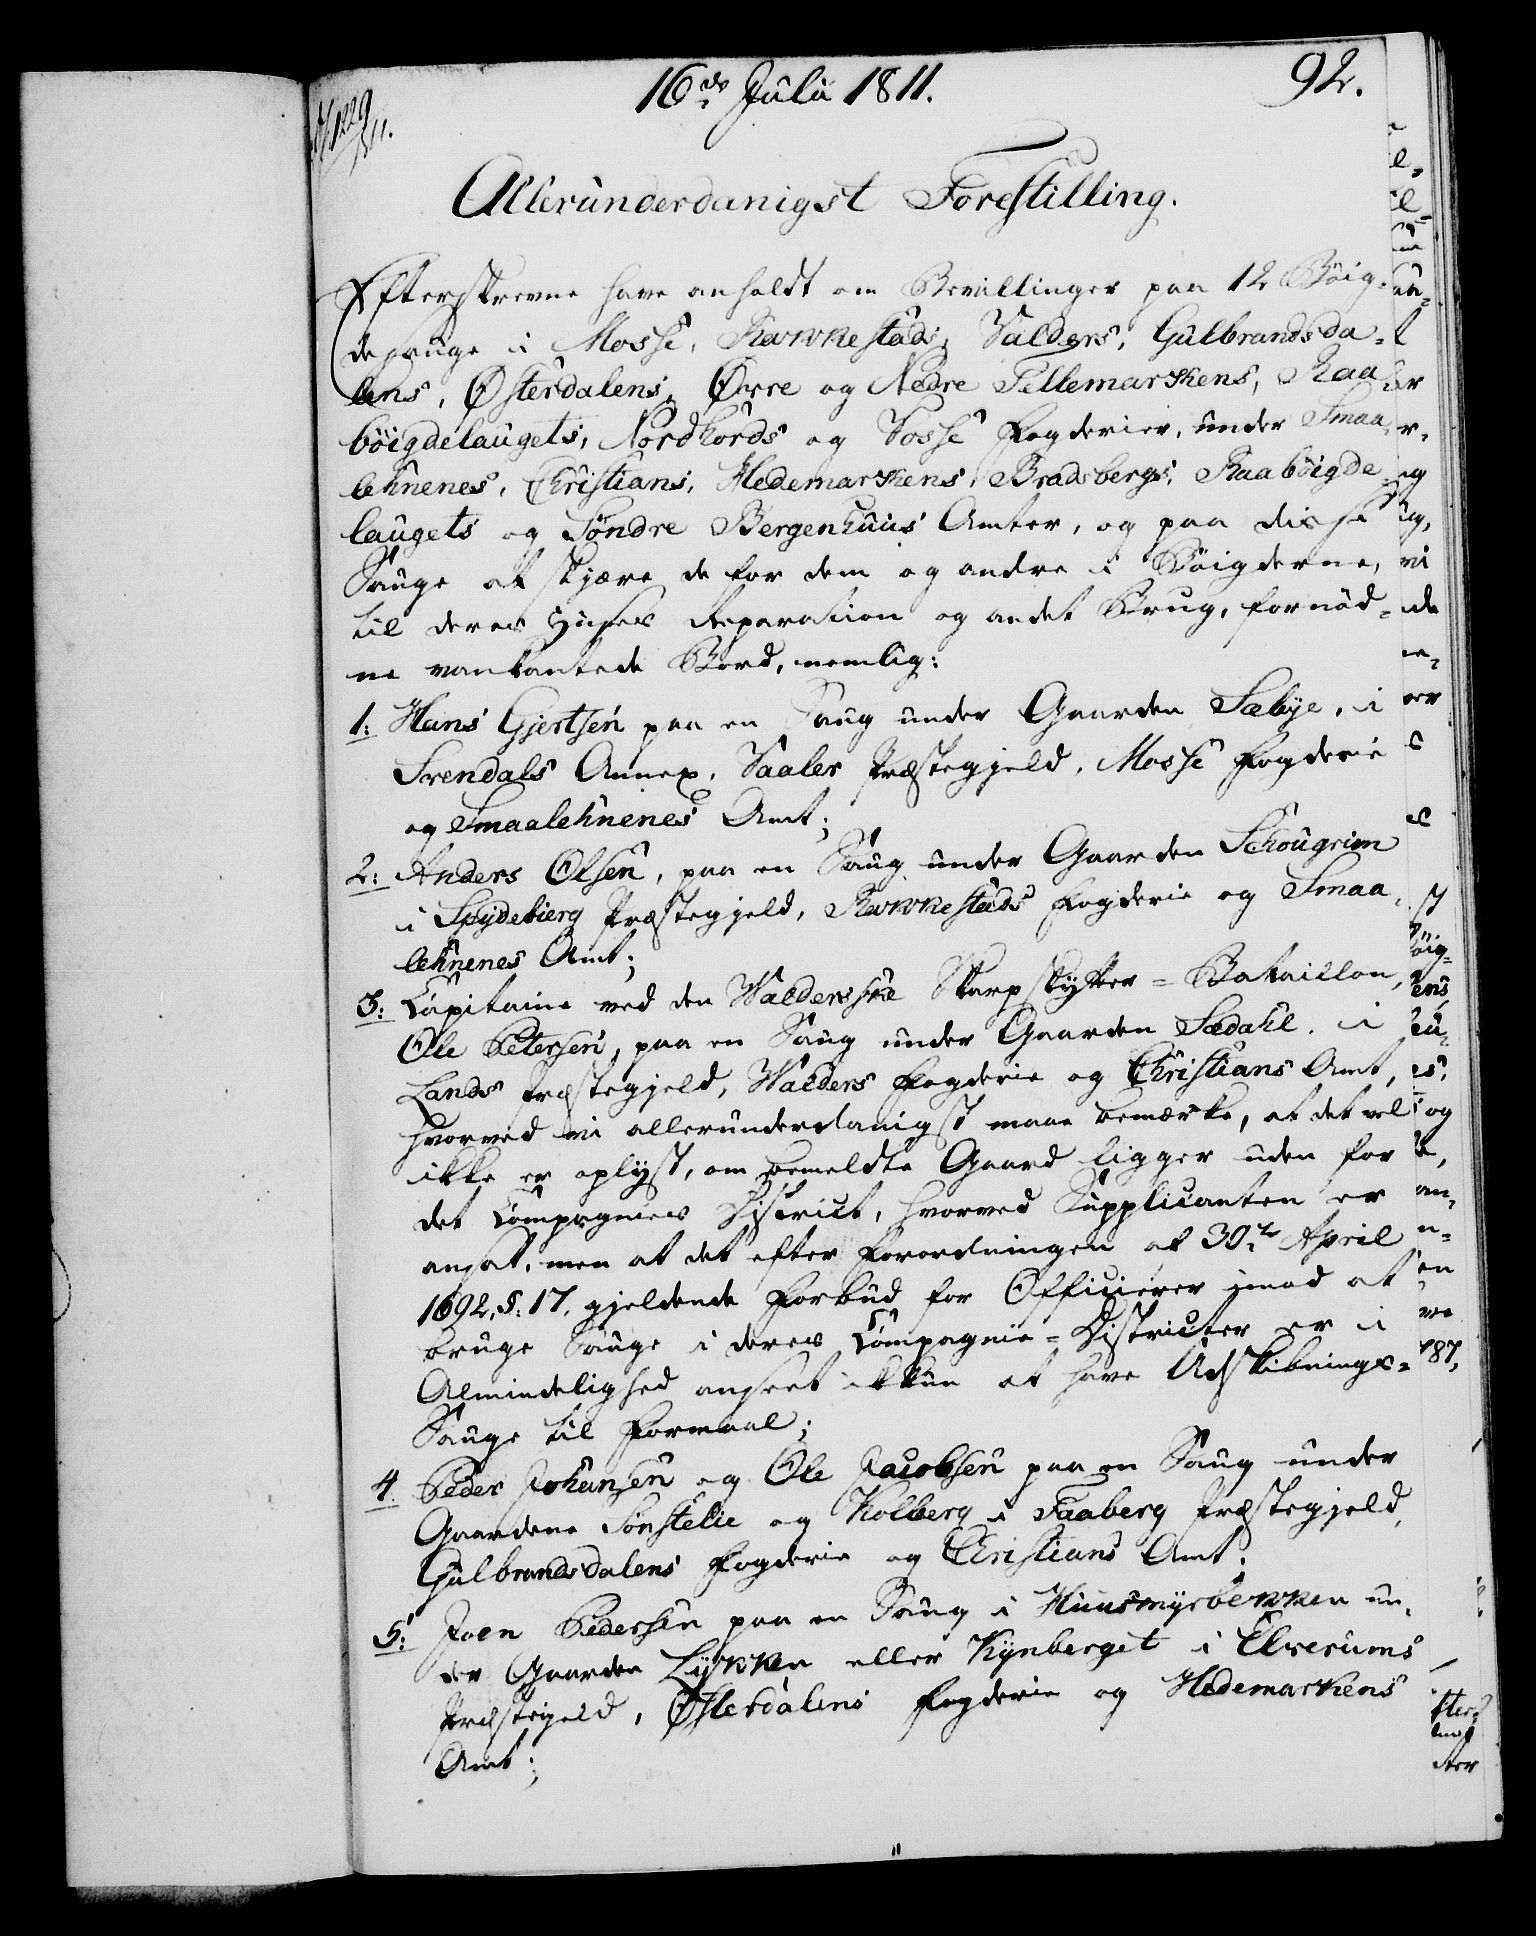 16de Julii 1811.
92.
1229
1811.
Allerunderdanigst Forestilling.
Efterskrevne have anholdt om Bevillinger paa 12 Böig-
desauge i Mosse, Rakkestads, Valders, Gulbrandsda-
lens, Østerdalens, Øvre og Nedre Tellemarkens, Raa
böigdelaugets, Nordhords og Vosse Fogderier, under Smaa-
lehnenes, Christians, Hedemarkens, Bradsbergs, Raabøigde
laugets og Søndre Bergenhuus Amter, og paa disse
Sauge at skjære de for dem og andre i Böigderne,
til deres Huses Reparation og andet Brug, fornød-
ne vankantede Bord, nemlig:
1: Hans Gjertsen paa en Saug under Gaarden Sæbye, i
Svendals Annex, Vaaler Præstegjeld, Mosse Fogderie
og Smaalehnenes Amt;
2: Anders Olsen, paa en Saug under Gaarden Schougrim
i Spydebierg Præstegjeld, Rakkestads Fogderie og Smaa-
lehnenes Amt;
3: Capitaine ved den Walderske Skarpskytter-Bataillon,
Ole Petersen, paa en Saug under Gaarden Sædahl i
Lands Præstegjeld, Walders Fogderie og Christians Amt,
hvorved vi allerunderdanigst maae bemærke, at det vel
ikke er oplyst, om bemeldte Gaard ligger uden for
det Compagnies District, hvorved Supplicanten er
ansat, men at det efter Forordningen af 30te April
1692, §: 17. gjeldende Forbud for Officierer imod at
bruge Sauge i deres Compagnie-Districter er i
Almindelighed anseet ikkun at have Udskibnings-
Sauge til Formaal;
4. Peder Johansen og Ole Jacobsen paa en Saug under
Gaardene Sønstelie og Kolberg i Faaberg Præstegjeld,
Gulbrandsdalens Fogderie og Christians Amt;
5: Joen Pedersen paa en Saug i Huusmyrbekken un-
der Gaarden Lykken eller Kynberget i Elverums
Præstegjeld, Østerdalens Fogderie og Hedemarkens
Amt;